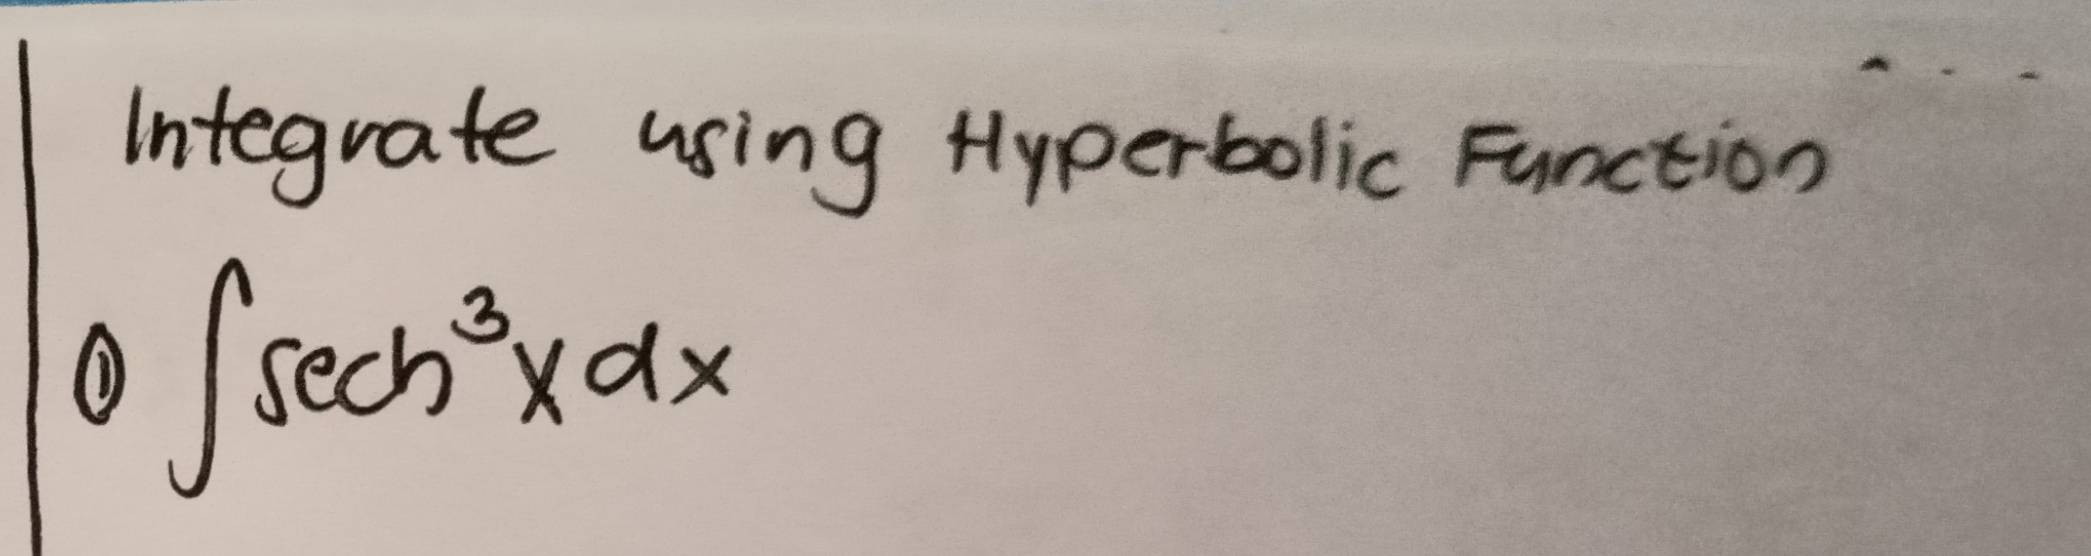 Integrate using Hyperbolic Function
① ∫sech³xdx